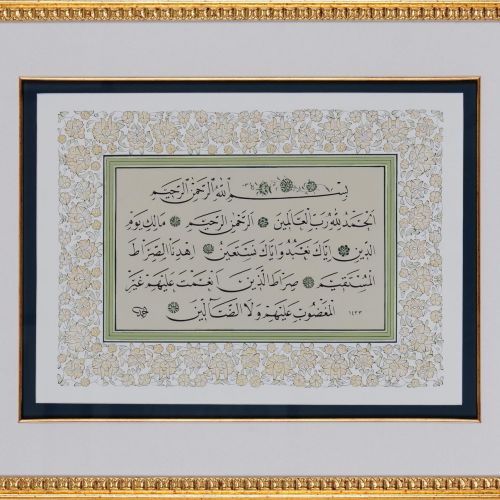 بِسْمِ اللهِ الرَّحْمٰنِ الرَّحِيمِ
اَلْحَمْدُ لِلّٰهِ رَبِّ الْعَالَمِينَ اَلرَّحْمٰنِ الرَّحِيمِ مَالِكِ يَوْمِ
الدِّينِ اِيَّاكَ نَعْبُدُ وَاِيَّاكَ نَسْتَعِينُ اِهْدِنَا الصِّرَاطَ
الْمُسْتَقِيمَ صِرَاطَ الَّذِينَ اَنْعَمْتَ عَلَيْهِمْ غَيْرِ
الْمَغْضُوبِ عَلَيْهِمْ وَلَا الضَّالِّينَ ١٤٣٣